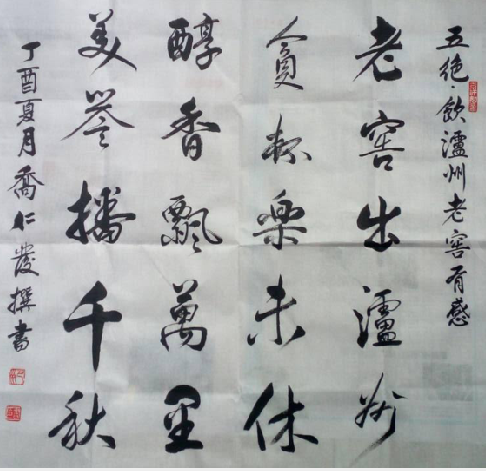 五絶·飲瀘州老窖有感
老窖出瀘州
貪杯樂未休
醇香飄萬里
美譽播千秋
丁酉夏月喬仁發撰書